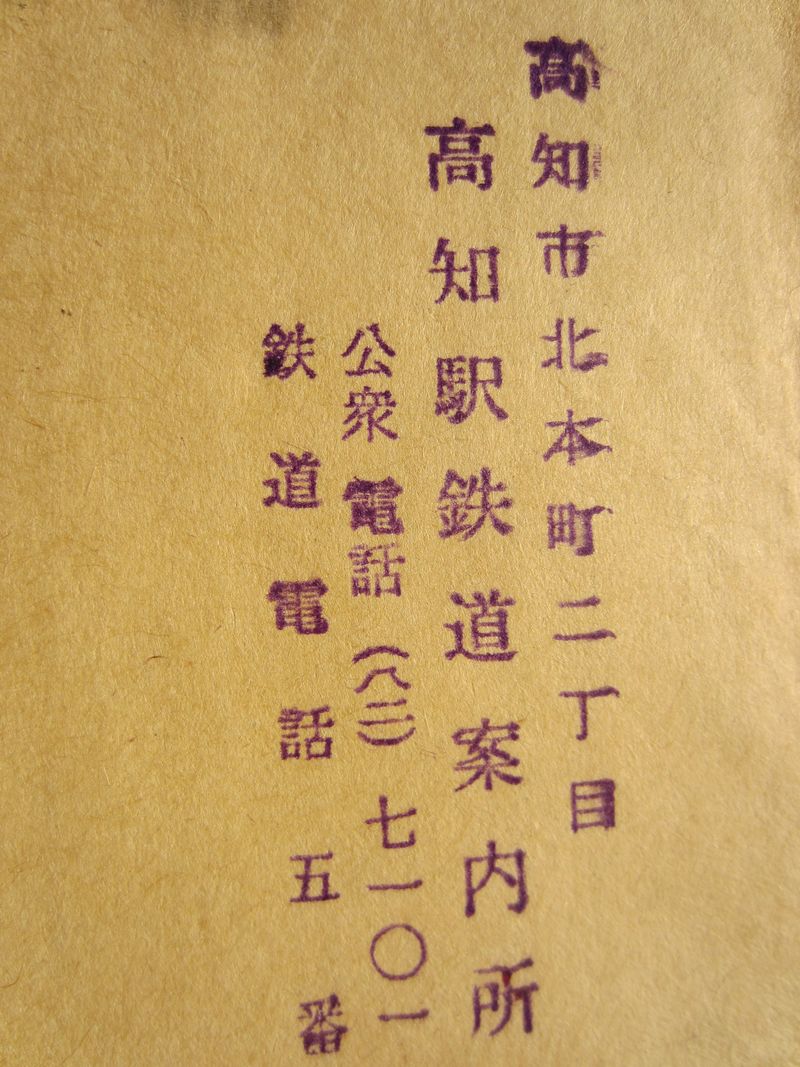 高知市北本町二丁目
高知駅鉄道案内所
公衆電話(八二)七一〇一
鉄道電話五番